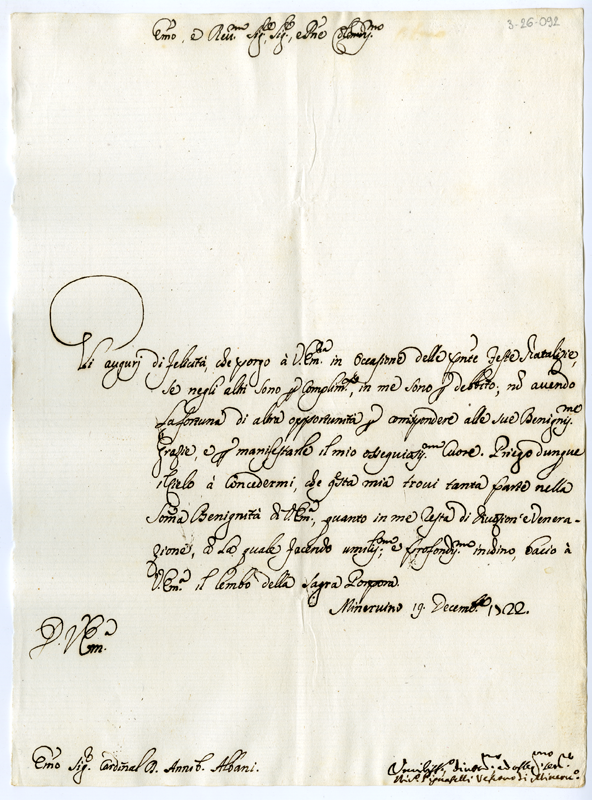 3-26-092
Emo, e Reu.mo Sig.r Sig.r, e Pne Colendis.mo
Gli augurj di felicità, che porgo à V. Em.za in occasione delle pnti Feste Natalizie,
se negli altri sono p Complim.to, in me sono p debbito; nõ auendo
la fortuna di altra opportunità p corrispondere alle sue Benignis.me
Grazie, e p manifestarle il mio ossequiosis.mo Cuore. Priego dunque
il Cielo à concedermi, che qsta mia trovi tanta parte nella
Soma Benignità di V. Em.a, quanto in me resta di diuozion' e Venera-
zione, con la quale facendo umilis.mo, e profondis.mo inchino, bacio à
V. Em.a il lembo della Sagra Porpora.
Mineruino 19. Decemb.re 1722.
D. V. Em.a
Emo Sig.r Cardinal D. Annib. Albani.
Vmiliss.mo diuotis.mo ed osseq.mo ser.re
Pignatelli Vescouo di Mineru.o